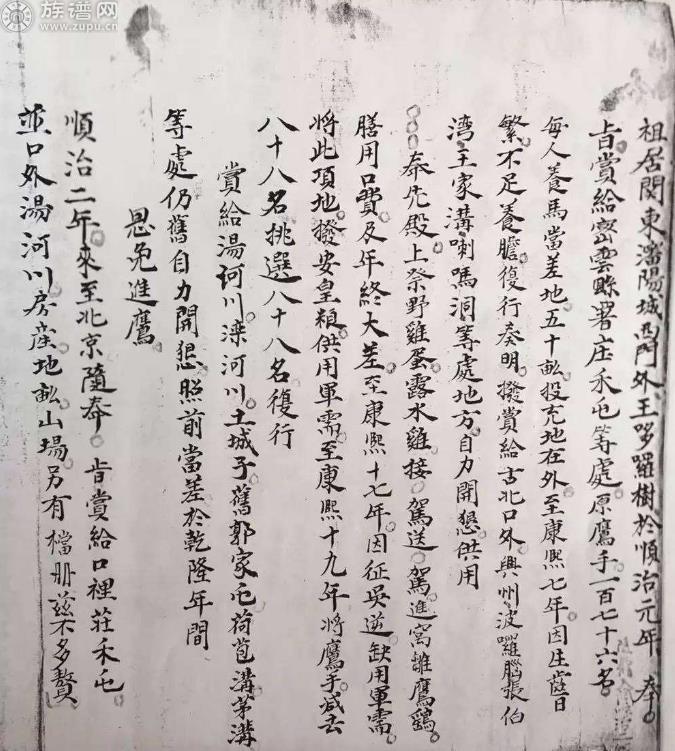 族谱网
www.zupu.cn
祖居関東瀋陽城西門外王哆羅樹於順治元年奉
旨賞給密雲縣署庄禾屯等處原鷹手一百七十六名
每人養馬當差地五十畝投充地在外至康熙七年因生齒日
繁不足養膽復行奏明撥賞給古北口外興州波羅腦張伯
湾王家溝喇嘛洞等處地方自力開懇供用
奉先殿上祭野雞蛋露水雞接駕送駕進窩雛鷹鷂
膳用口費及年終大差至康熙十七年因征吳逆缺用軍需
將此項地撥安皇粮供用軍需至康熙十九年將鷹手減去
八十八名挑選八十八名復行
賞給湯河川滦河川土城子舊郭家屯荷苞溝茅溝
等處仍舊自力開懇照前當差於乾隆年間
恩免進鷹
順治二年來至北京隨奉旨賞給口裡莊禾屯
並口外湯河川房產地畝山場另有檔册兹不多贅